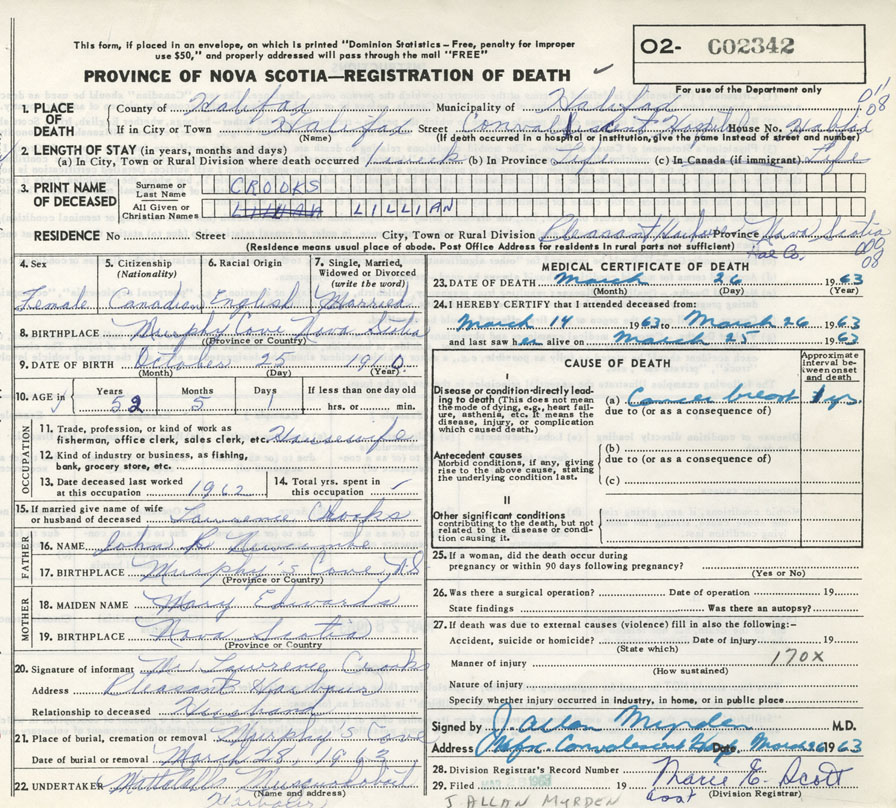 This form, if placed in an envelope, on which is printed "Dominion Statistics – Free, penalty for improper
use $50," and properly addressed will pass through the mail "FREE"
O2- C02342
PROVINCE OF NOVA SCOTIA—REGISTRATION OF DEATH
For use of the Department only
1. PLACE OF DEATH
County of Halifax Municipality of Halifax
If in City or Town Halifax Street Convalescent Hospital House No. Halifax
(Name) (If death occurred in a hospital or institution, give the name instead of street and number)
2. LENGTH OF STAY (in years, months and days)
(a) In City, Town or Rural Division where death occurred 1 week (b) In Province Life (c) In Canada (if immigrant) Life
3. PRINT NAME OF DECEASED
Surname or Last Name CROOKS
All Given or Christian Names LILLIAN
RESIDENCE No Street City, Town or Rural Division Pleasant Harbour Province Nova Scotia
(Residence means usual place of abode. Post Office Address for residents in rural parts not sufficient)
Hal Co.
4. Sex 5. Citizenship (Nationality) 6. Racial Origin 7. Single, Married, Widowed or Divorced (write the word)
Female Canadian English Married
8. BIRTHPLACE Murphy Cove Nova Scotia
(Province or Country)
9. DATE OF BIRTH October 25 1910
(Month) (Day) (Year)
10. AGE in Years Months Days If less than one day old
52 5 1 hrs. or min.
OCCUPATION
11. Trade, profession, or kind of work as fisherman, office clerk, sales clerk, etc. Housewife
12. Kind of industry or business, as fishing, bank, grocery store, etc.
13. Date deceased last worked at this occupation 1962 14. Total yrs. spent in this occupation
15. If married give name of wife or husband of deceased Lawrence Crooks
FATHER
16. NAME John R Newcombe
17. BIRTHPLACE Murphy's Cove N.S
(Province or Country)
MOTHER
18. MAIDEN NAME Mary Edwards
19. BIRTHPLACE Nova Scotia
(Province or Country)
20. Signature of informant Mr. Lawrence Crooks
Address Pleasant Harbour
Relationship to deceased Husband
21. Place of burial, cremation or removal Murphy's Cove
Date of burial or removal March 28, 1963
22. UNDERTAKER Musquodoboit
(Name and address)
Harbour
MEDICAL CERTIFICATE OF DEATH
23. DATE OF DEATH March 26 1963
(Month) (Day) (Year)
24. I HEREBY CERTIFY that I attended deceased from:
March 14 1963 to March 26 1963
and last saw her alive on March 25 1963
CAUSE OF DEATH
Approximate interval between onset and death
I
Disease or condition directly leading to death (This does not mean the mode of dying, e.g., heart failure, asthenia, etc. It means the disease, injury, or complication which caused death.)
(a) Cancer breast 1 yr.
due to (or as a consequence of)
Antecedent causes
Morbid conditions, if any, giving rise to the above cause, stating the underlying condition last.
(b)
due to (or as a consequence of)
(c)
II
Other significant conditions
contributing to the death, but not related to the disease or condition causing it.
25. If a woman, did the death occur during pregnancy or within 90 days following pregnancy?
(Yes or No)
26. Was there a surgical operation? Date of operation 19
State findings Was there an autopsy?
27. If death was due to external causes (violence) fill in also the following:–
Accident, suicide or homicide? Date of injury 19
(State which)
170X
Manner of injury
(How sustained)
Nature of injury
Specify whether injury occurred in industry, in home, or in public place
Signed by J. Allan Myrden M.D.
Address Hfx. Convalescent Hosp Date March 26 1963
28. Division Registrar's Record Number
29. Filed 19 Marie E. Scott
(Division Registrar)
J ALLAN MYRDEN